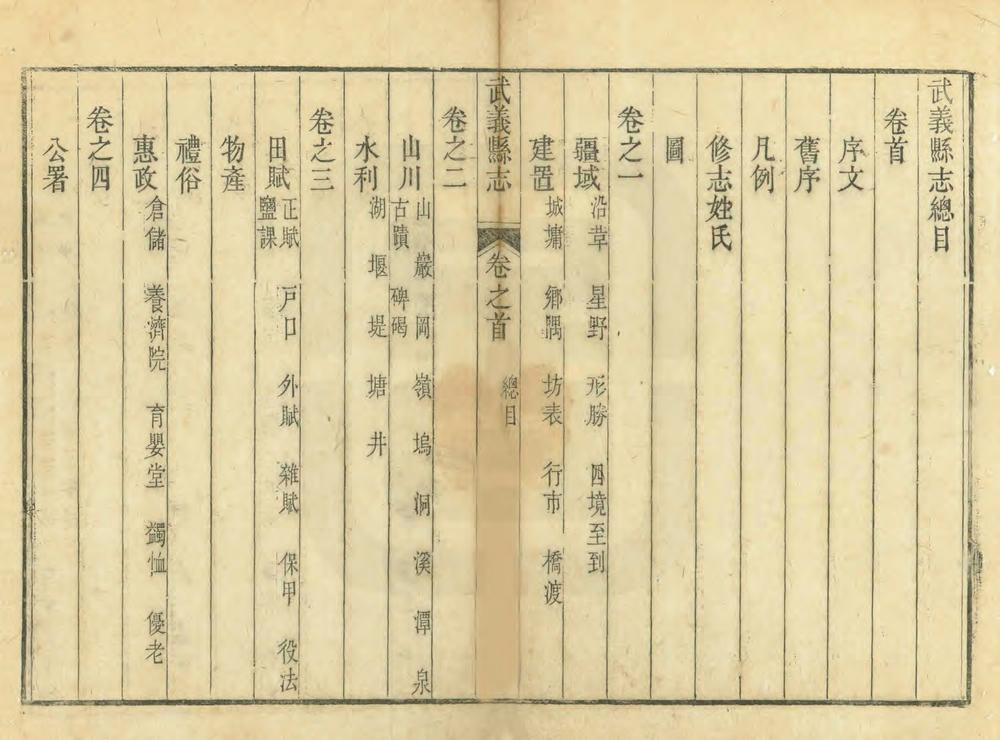 武義縣志總目
卷首
序文
舊序
凡例
修志姓氏
圖
卷之一
疆域 沿革 星野 形勝 四境至到
建置 城墉 鄉隅 坊表 行市 橋渡
武義縣志 卷之首 總目
卷之二
山川 山 巖 岡 嶺 塢 洞 溪 潭 泉
古蹟 碑碣
水利 湖 堰 堤 塘 井
卷之三
田賦 正賦 戶口 外賦 雜賦 保甲 役法
鹽課
物產
禮俗
惠政 倉儲 養濟院 育嬰堂 蠲恤 優老
卷之四
公署